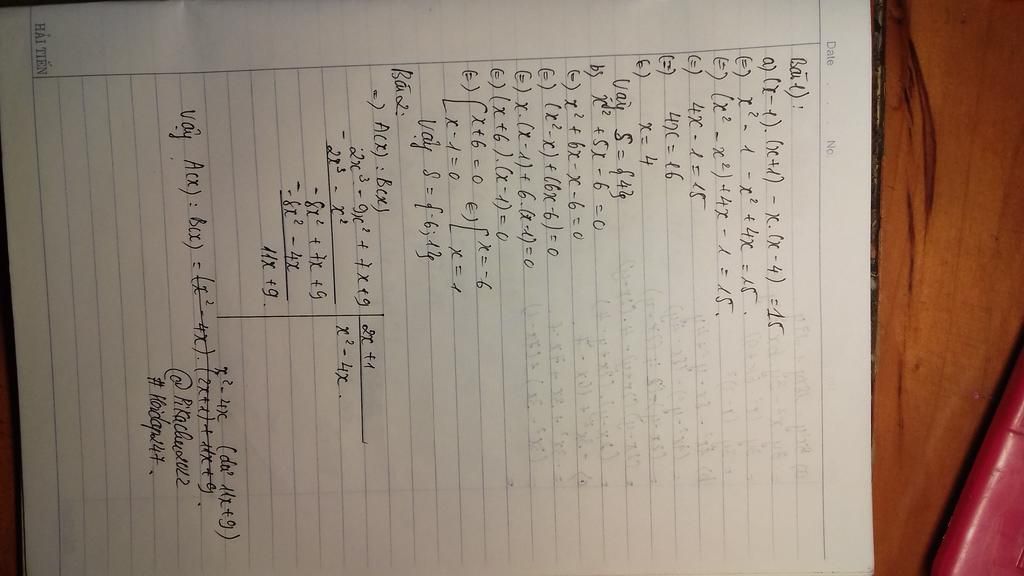 Date No.
Bài 1):
a) (x-1).(x+1) - x.(x-4) = 15
(=) x² - 1 - x² + 4x = 15.
(=) (x² - x²) + 4x - 1 = 15.
(=) 4x - 1 = 15
(=) 4x = 16
(=) x = 4
Vậy S = {4}
b) x² + 5x - 6 = 0
(=) x² + 6x - x - 6 = 0
(=) (x² - x) + (6x - 6) = 0
(=) x.(x-1) + 6.(x-1) = 0
(=) (x+6).(x-1) = 0
(=) [x+6 = 0 (=) [x = -6
[x-1 = 0 [x = 1
Vậy S = {-6; 1}
Bài 2:
=) A(x) : B(x)
2x³ - 9x² + 7x + 9 | 2x + 1
- 2x³ - x² | x² - 4x.
- 8x² + 7x + 9
- - 8x² - 4x
11x + 9.
x² - 4x (dư 11x + 9)
Vậy A(x) : B(x) = (x² - 4x).(2x+1) + 11x + 9.
@Pikachuu002
#Hoidap247.
HẢI TIẾN